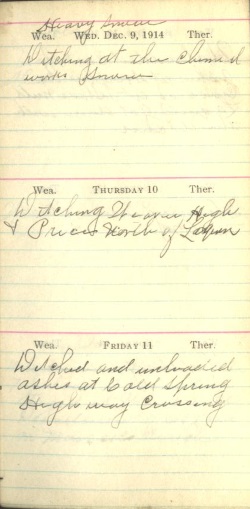 Heavy snow
Wea. WED. DEC. 9, 1914 Ther.
Ditching at the Chemical
works Snow
Wea. THURSDAY 10 Ther.
Ditching Weaver High
& Prices North of Laquin
Wea. FRIDAY 11 Ther.
Ditched and unloaded
ashes at Cold Spring
High way Crossing